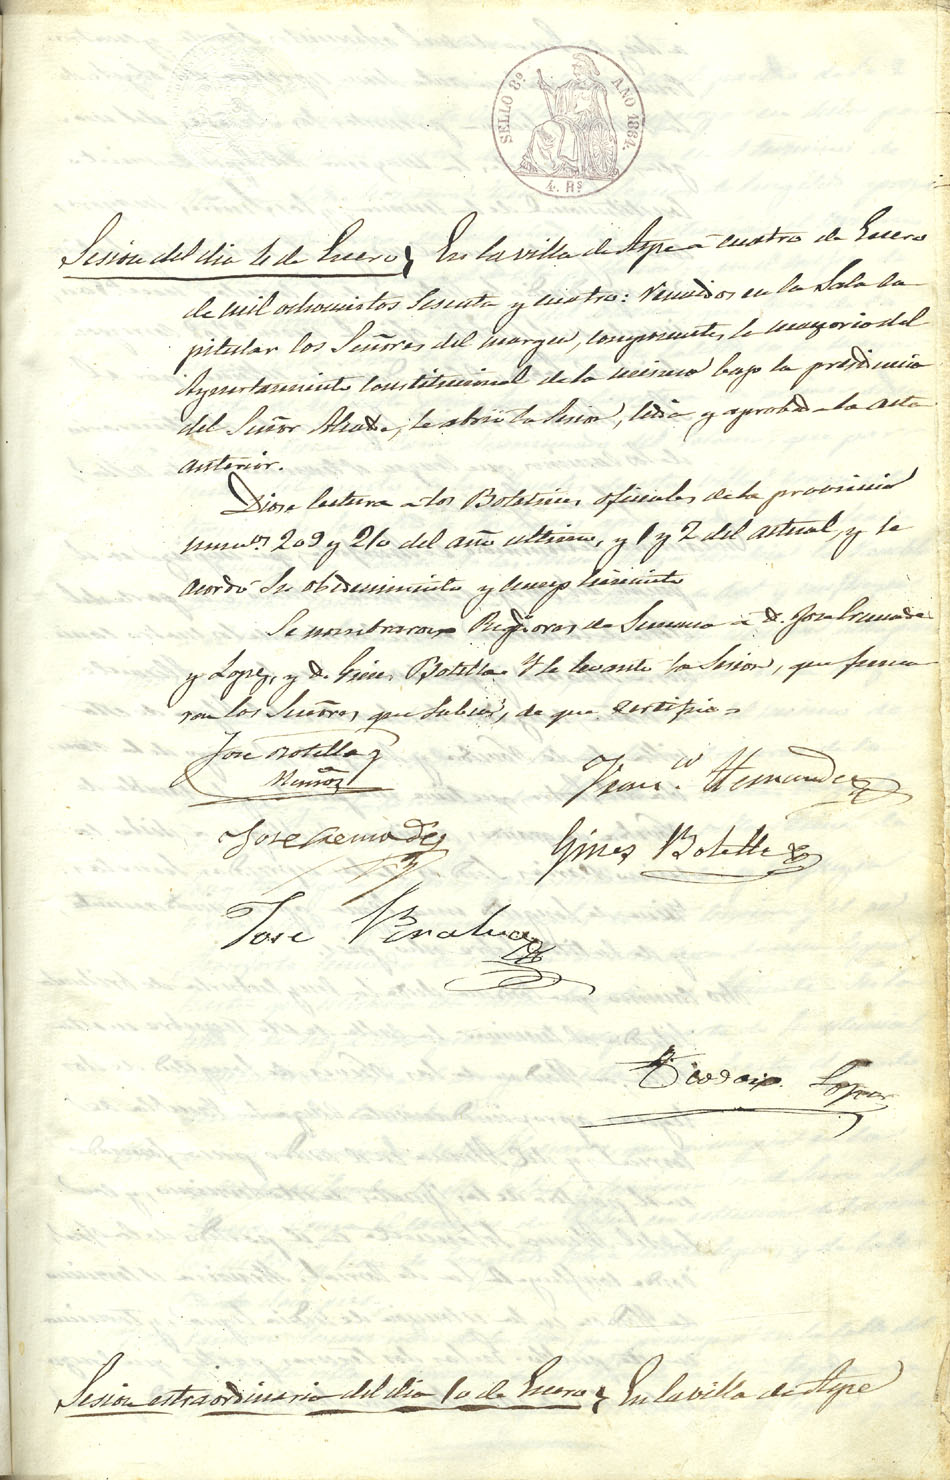 SELLO 8º AÑO 1864.
4. Rs
Sesion del dia 4 de Enero } En la villa de Aspe à cuatro de Enero
de mil ochocientos sesenta y cuatro: reunidos en la Sala ca-
pitular los Señores del margen, componentes la mayoria del
Ayuntamiento Constitucional de la misma bajo la presidencia
del Señor Alcalde, se abrió la Sesion, leida y aprobada la acta
anterior.
Diose lectura à los Boletines oficiales de la provincia
numos 209 y 210 del año ultimo, y 1 y 2 del actual, y se
acordó su obedecimiento y cumplimiento
Se nombraron Regidores de Semana à D. Jose Cremades
y Lopez, y D. Gines Botella. Y se levantó la Sesion, que firma-
ron los Señores que saben, de que certifico=
Jose Botella y
Muñoz
Franco Hernandez
Jose Cremades
Gines Botella
Jose
Teodoro Lopez
Sesion estraordinaria del dia 10 de Enero } En la villa de Aspe